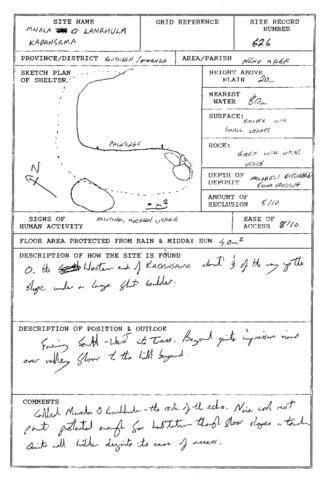 SITE NAME
MWALA O LANKHULA
KADANSAMA
GRID REFERENCE
SITE RECORD
NUMBER
626
PROVINCE/DISTRICT
AREA/PARISH
SKETCH PLAN
OF SHELTER.
HEIGHT ABOVE
PLAIN 20m
NEAREST
WATER 80m
SURFACE:
SMALL LEDGES
ROCK:
GREY WITH
DEPTH OF
DEPOSIT
AMOUNT OF
SECLUSION 5/10
N
m²
SIGNS OF
HUMAN ACTIVITY
PAINTING, MODERN USAGE
EASE OF
ACCESS 8/10
FLOOR AREA PROTECTED FROM RAIN & MIDDAY SUN 40m²
DESCRIPTION OF HOW THE SITE IS FOUND
On the Western end of KADANSAMA about ⅓ of the way up the
slope under a large boulder.
DESCRIPTION OF POSITION & OUTLOOK
Facing South-West it Beyond quite impressive views
over valley floor to the hill beyond.
COMMENTS
Called the rock of the echo. Nice cool
protected enough for habitation though floor slopes a touch.
Quite well hidden despite its ease of access.